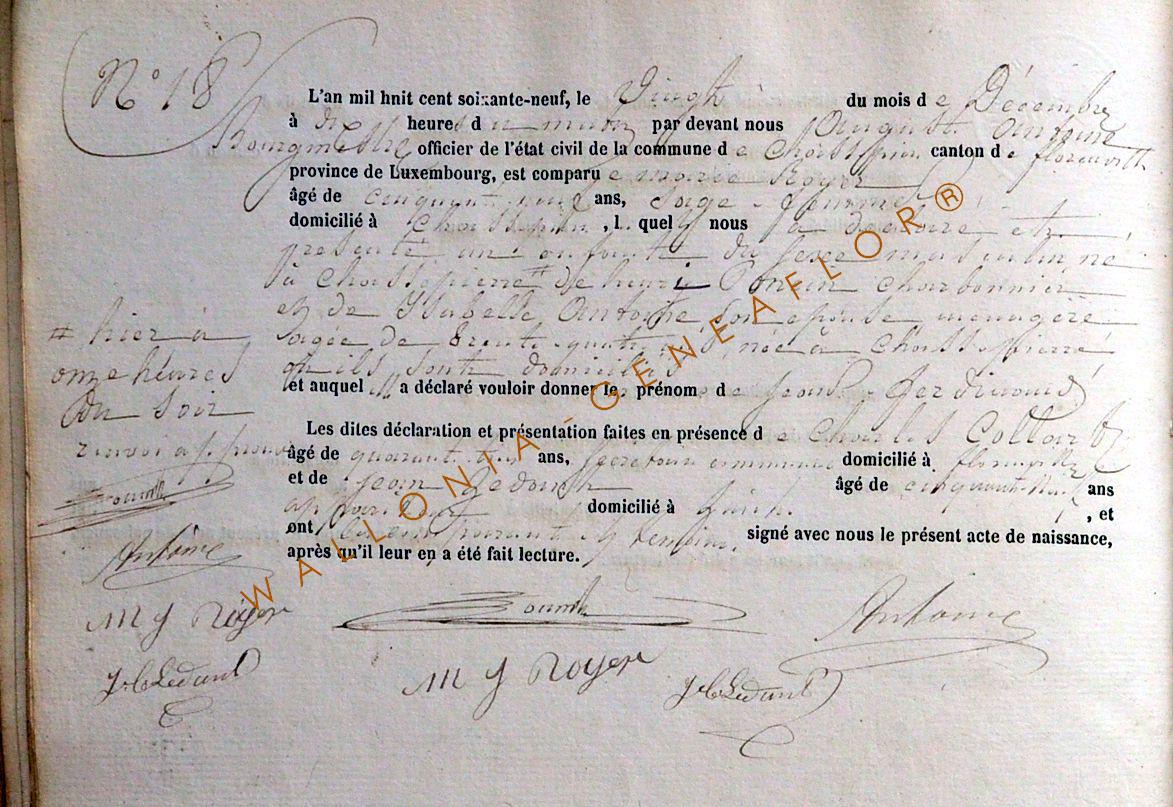 N° 18
L'an mil huit cent soixante-neuf, le Vingt du mois de Décembre
à dix heures du matin par devant nous August Antoine
Bourgmestre officier de l'état civil de la commune de Chassepierre canton de florenville
province de Luxembourg, est comparue marie Royer
âgé de cinquant ans, sage femme
domicilié à Chassepierre, l quel nous a déclaré et
présenté un enfant du sexe masculin né
à Chassepierre # de henri Poncin charbonnier
et de Isabelle Antoine, son epouse menagère
agée de trente quatre ans, née à Chassepierre
où ils sont domiciliés
et auquel a déclaré vouloir donner le prénom de jean ferdinand
# hier à
onze heures
du soir
renvoi approuvé
Les dites déclaration et présentation faites en présence de Charles Collard
âgé de quarant ans, secrétaire communal domicilié à
et de jean Ledant âgé de cinquant neuf ans
domicilié à , et
ont les comparant et temoins signé avec nous le présent acte de naissance,
après qu'il leur en a été fait lecture.
Antoine
M J Royer
J Ledant
Antoine
M J Royer
J Ledant
WALLONIA-GENEAFLOR®